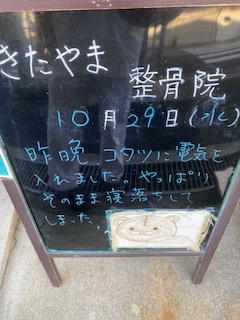 きたやま
整骨院
10月29日(水)
昨晩、コタツに電気を
入れました。やっぱり
そのまま寝落ちして
しました。